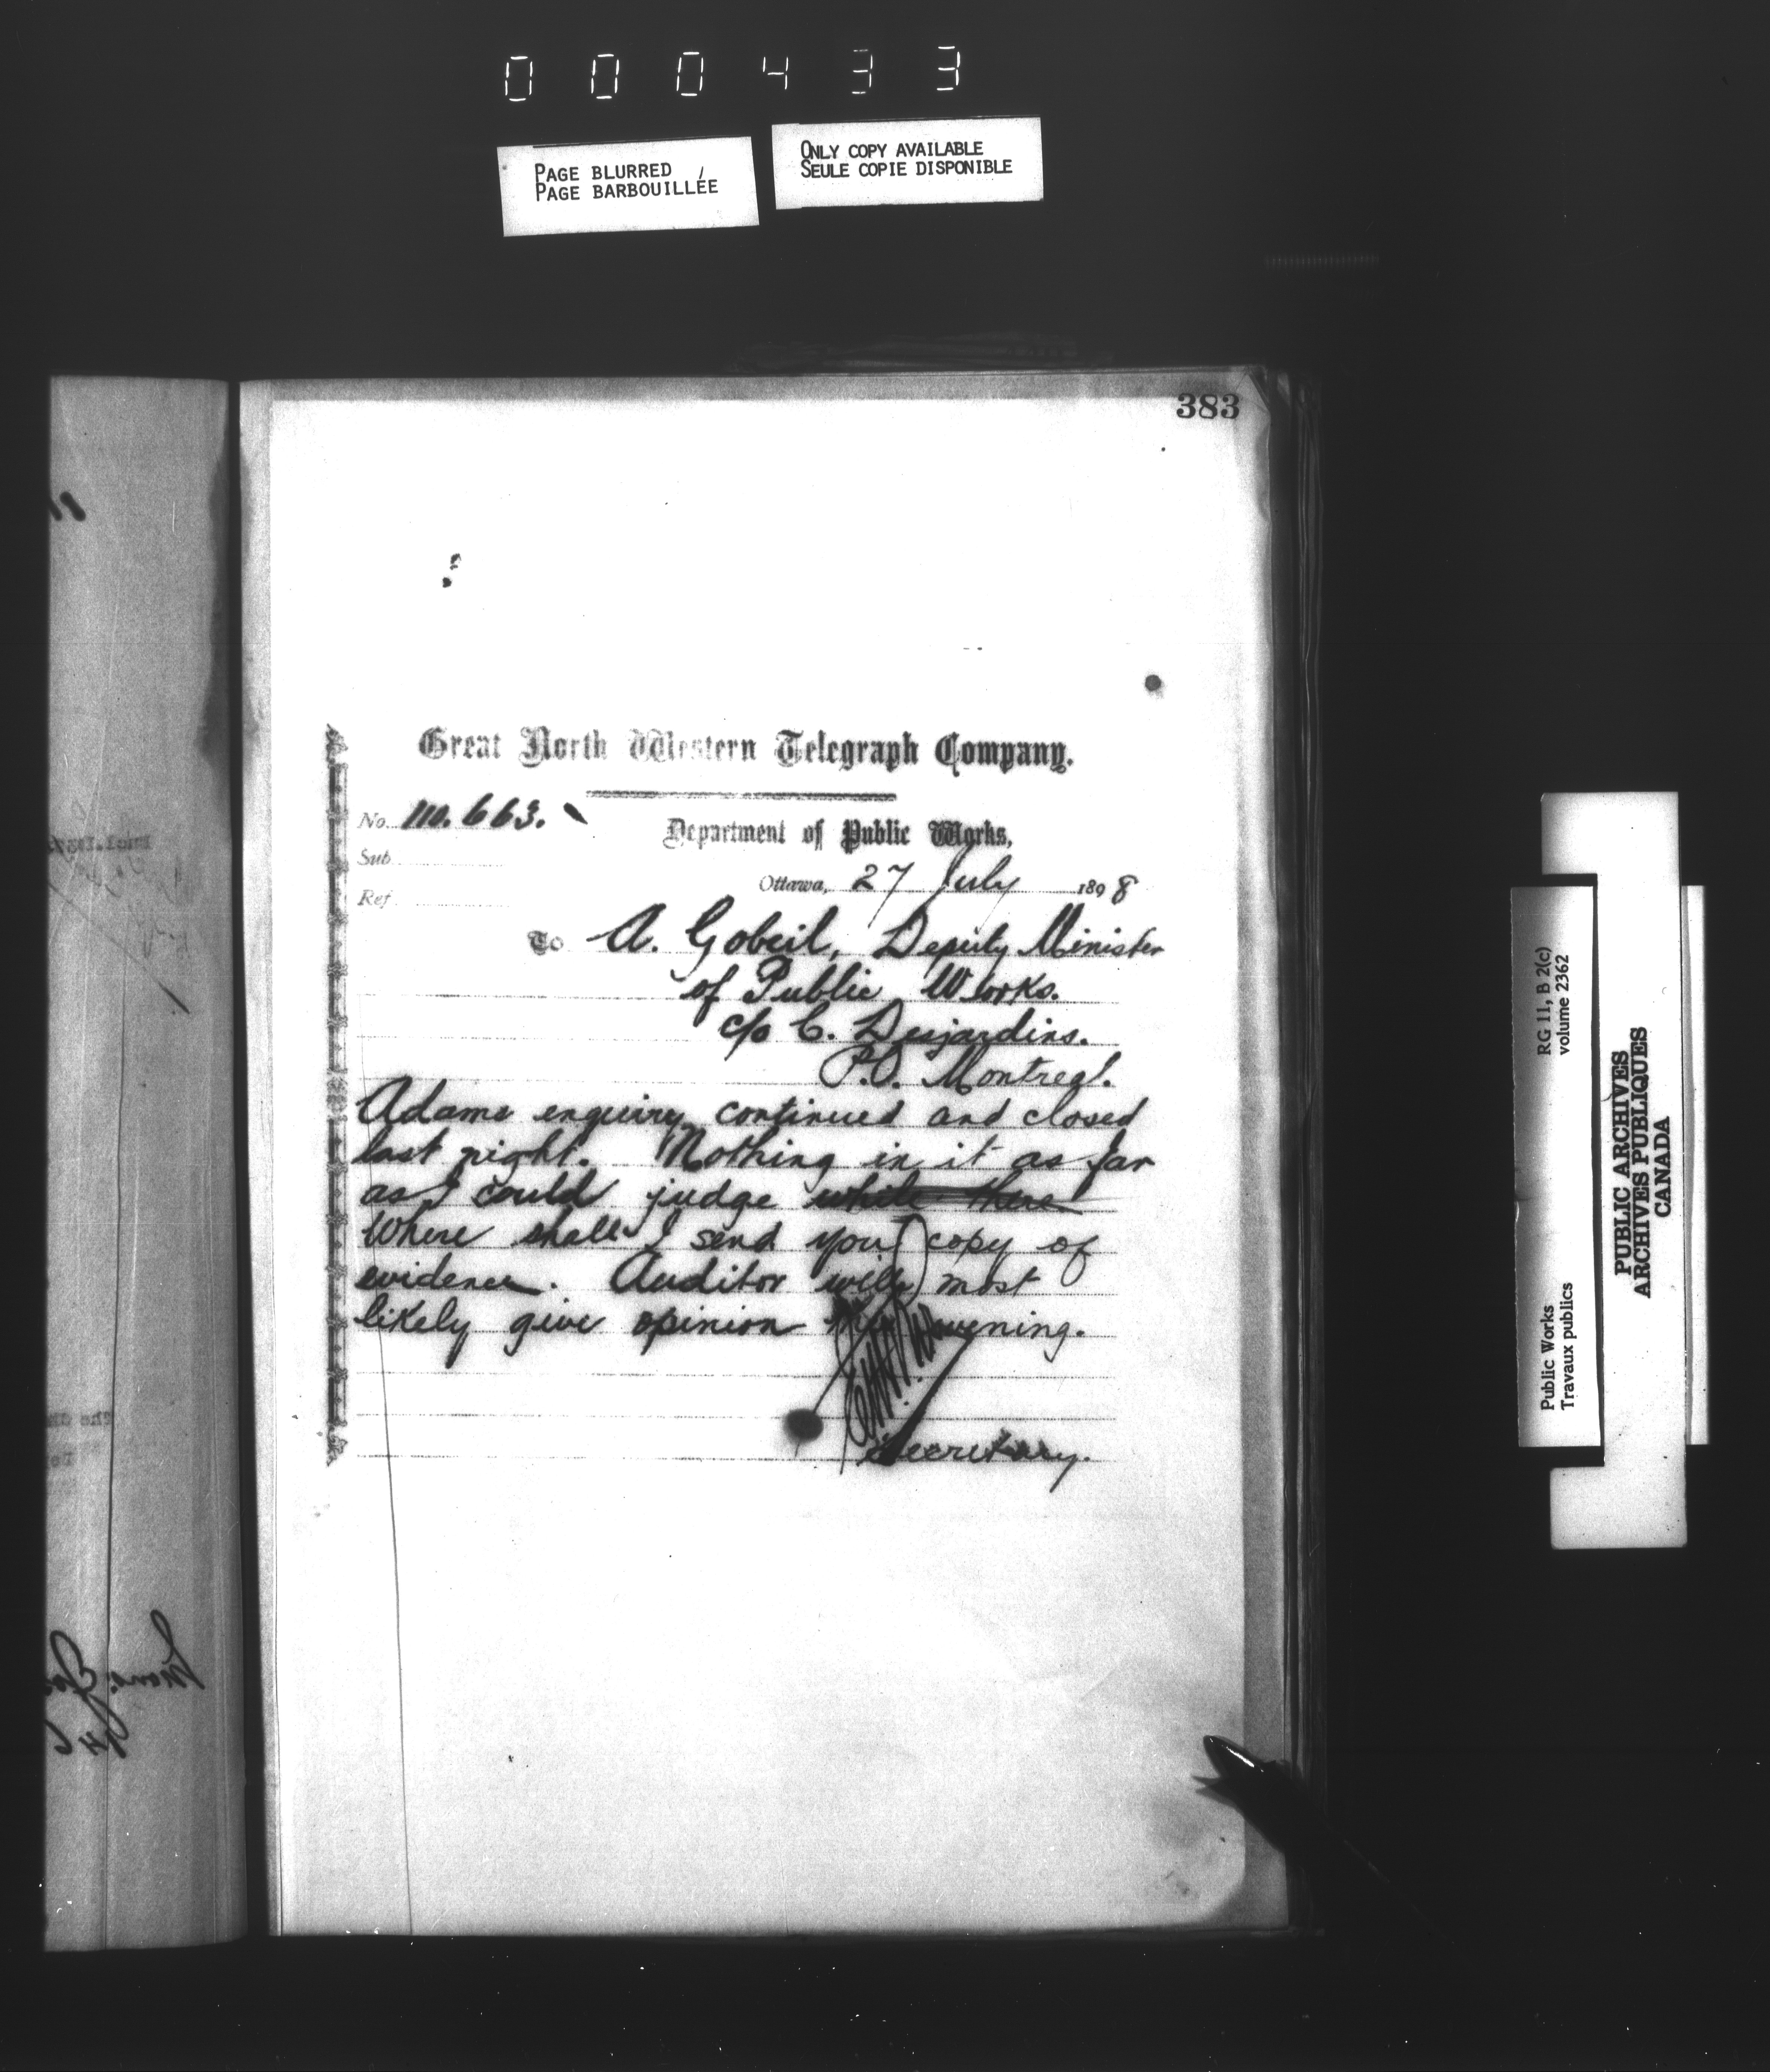 000433
PAGE BLURRED
PAGE BARBOUILLÉE
ONLY COPY AVAILABLE
SEULE COPIE DISPONIBLE
383
Great North Western Telegraph Company.
No. 110.663.
Department of Public Works,
Sub
Ottawa, 27 July 1898
Ref
To A. Gobeil, Deputy Minister
of Public Works.
c/o C. Desjardins.
P.O. Montreal.
Adams enquiry continued and closed
last night. Nothing in it as far
as I could judge while there
Where shall I send you copy of
evidence. Auditor will most
likely give opinion this evening.
Secretary.
RG 11, B 2(c)
volume 2362
Public Works
Travaux publics
PUBLIC ARCHIVES
ARCHIVES PUBLIQUES
CANADA